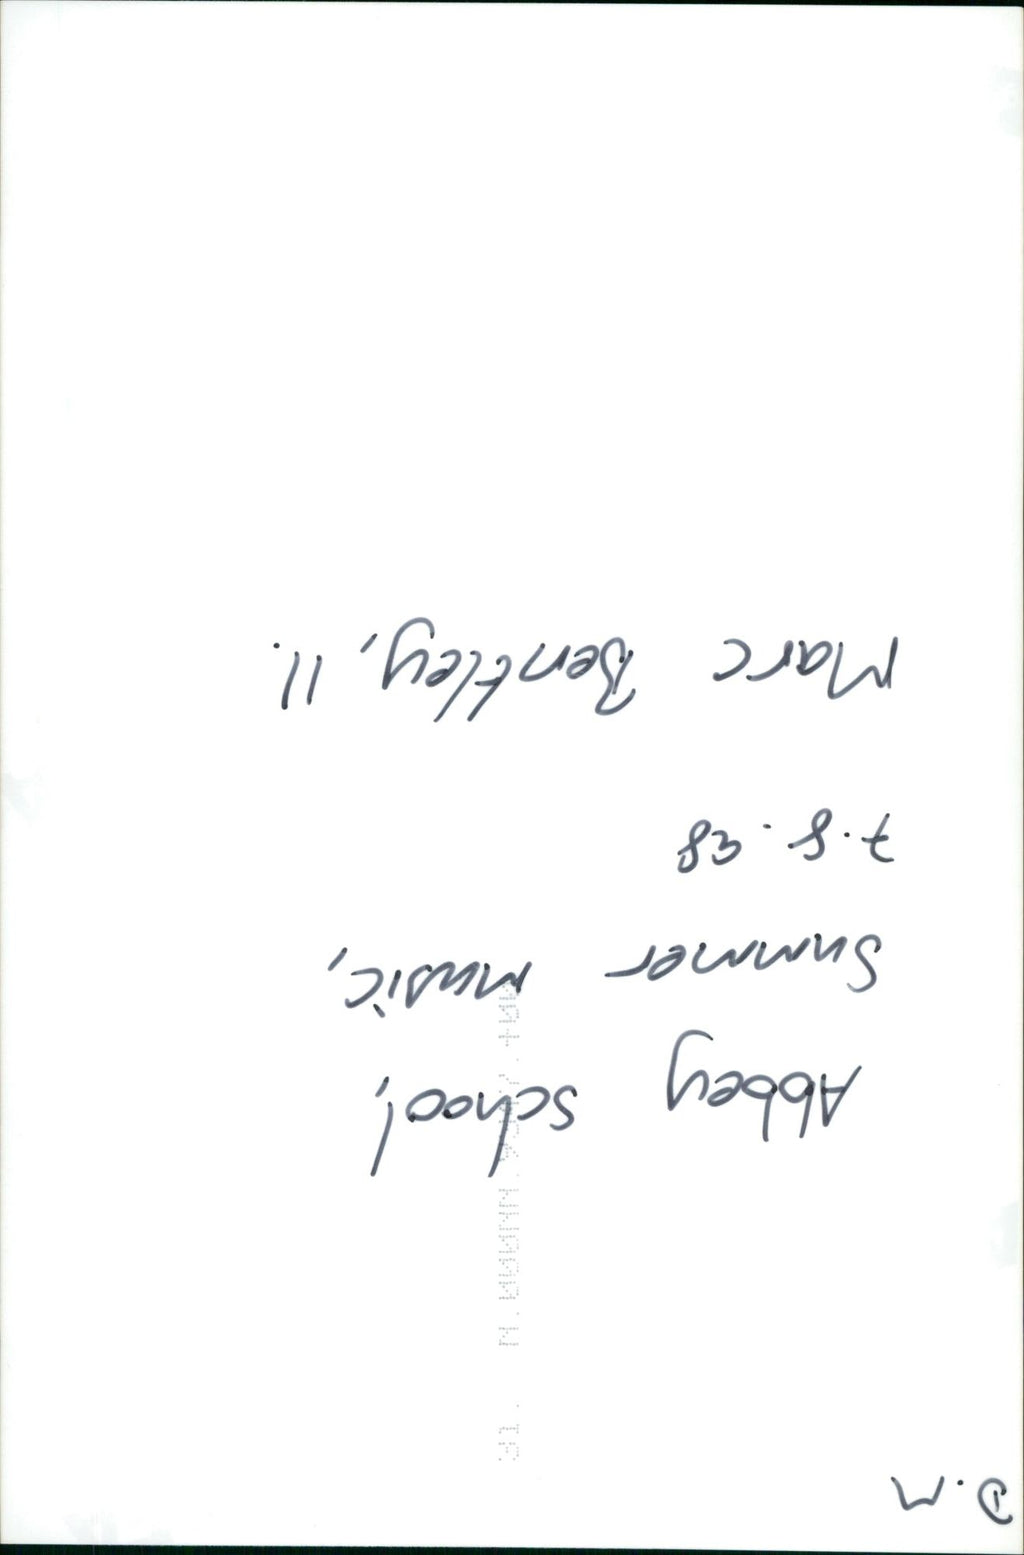 D.M
Abbey School,
Summer music,
7.8.
Marc Bentley, 11.